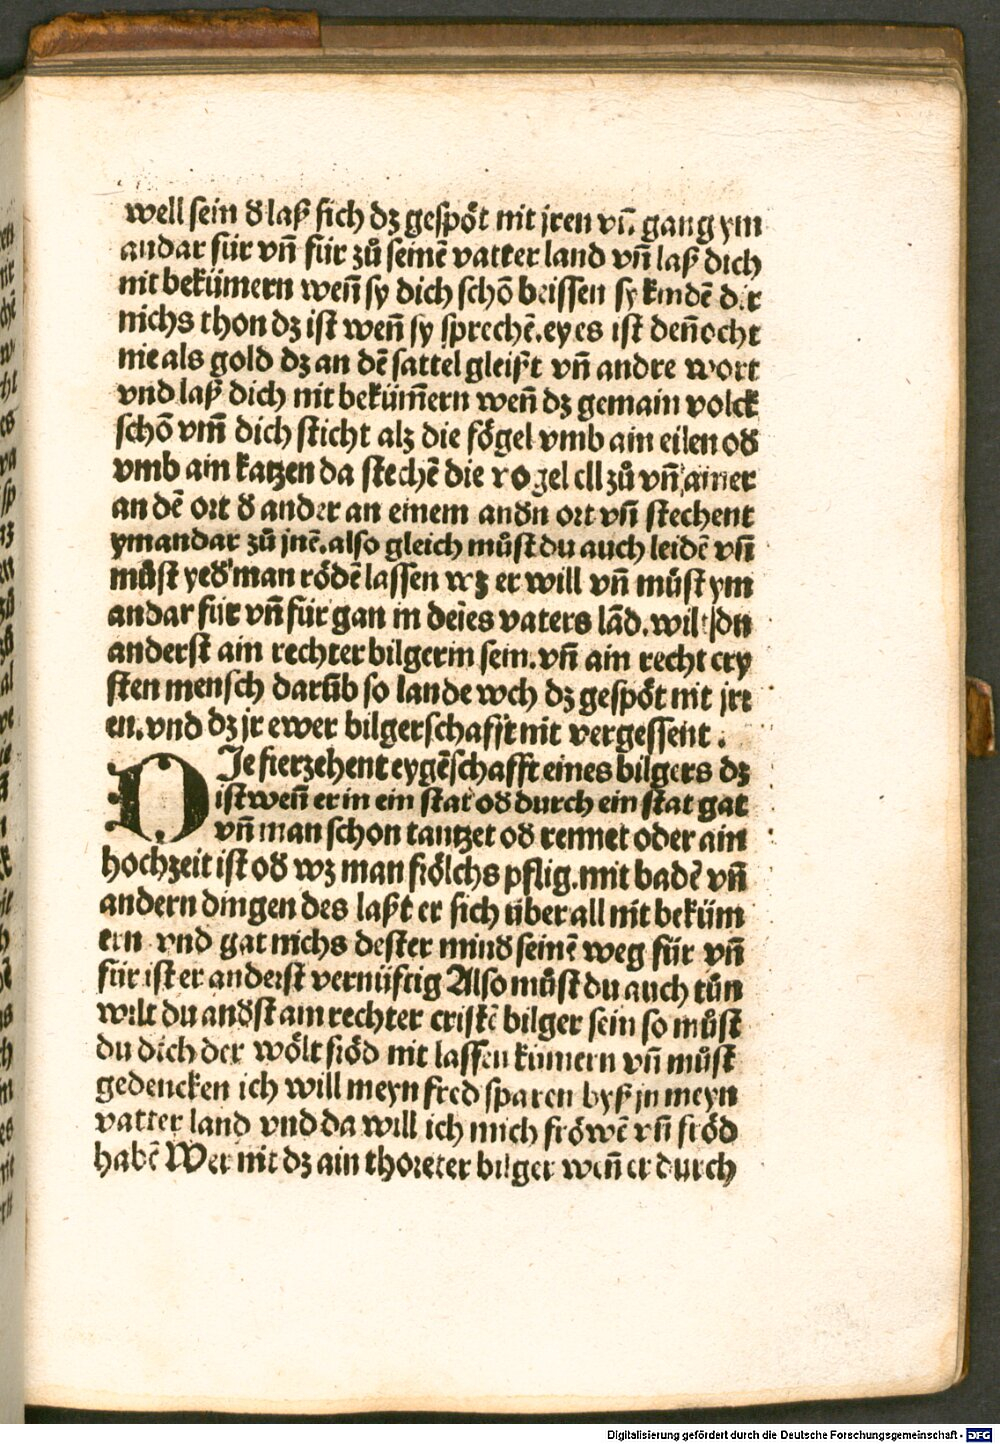 well sein đ laß sich dʒ gespöt nit jren vñ gang ym
andar für vñ für zů seinē vatter land vñ laß dich
nit bekümern weñ sy dich schō beissen sy kindē dir
nichs thon dʒ ist weñ sy sprechē. ey es ist deñocht
nie als gold dʒ an dē sattel gleißt vñ andre wort
vnd laß dich nit beküm̄ern weñ dʒ gemain volck
schō vm̄ dich sticht alʒ die fögel vmb ain eilen ođ
vmb ain katzen da stechē die vogel all zů vñ ainer
an dē ort đ ander an einem anđn ort vñ stechent
ymandar zů jnē. also gleich můst du auch leidē vñ
můst yeđman rödē lassen wʒ er will vñ můst ym
andar für vñ für gan in deīes vaters lād. wilt du
anderst ain rechter bilgerin sein. vñ ain recht cry
sten mensch darūb so lande wch dʒ gespöt nit jrr
en. vnd dʒ jr ewer bilgerschafft nit vergessent.
DIe fierzehent eygēschafft eines bilgers dʒ
ist weñ er in ein stat ođ durch ein stat gat
vñ man schon tantzet ođ rennet oder ain
hochzeit ist ođ wʒ man frölchs pflig. mit badē vñ
andern dingen des laßt er sich über all nit beküm
ern vnd gat nichs dester minđ seinē weg für vñ
für ist er anderst vernüftig Also můst du auch tůn
wilt du anđst ain rechter cristē bilger sein so můst
du dich der wölt fröd nit lassen kümern vñ můst
gedencken ich will meyn fred sparen byß jn meyn
vatter land vnd da will ich mich fröwē vñ fröd
habē Wer nit dʒ ain thoreter bilger weñ er durch
Digitalisierung gefördert durch die Deutsche Forschungsgemeinschaft - DFG